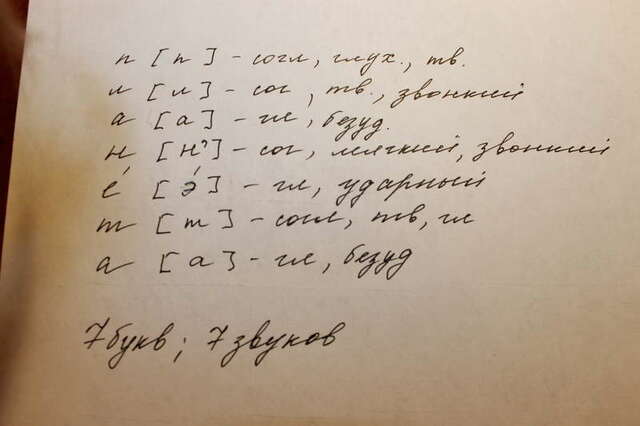 п [п] - согл, глух., тв.
л [л] - сог, тв., звонкий
а [а] - гл, безуд.
н [н'] - сог, мягкий, звонкий
е́ [э́] - гл, ударный
т [т] - согл, тв, гл
а [а] - гл, безуд
7 букв; 7 звуков